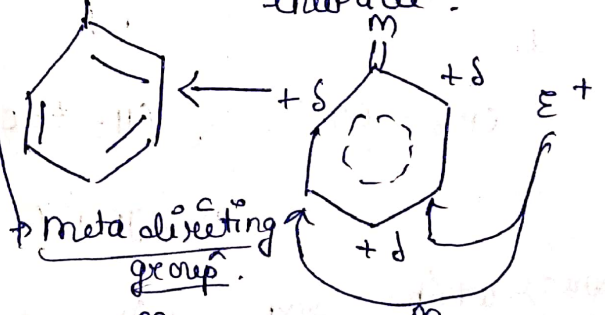 M
+ δ
+ δ
ε +
meta directing
group.
+ d